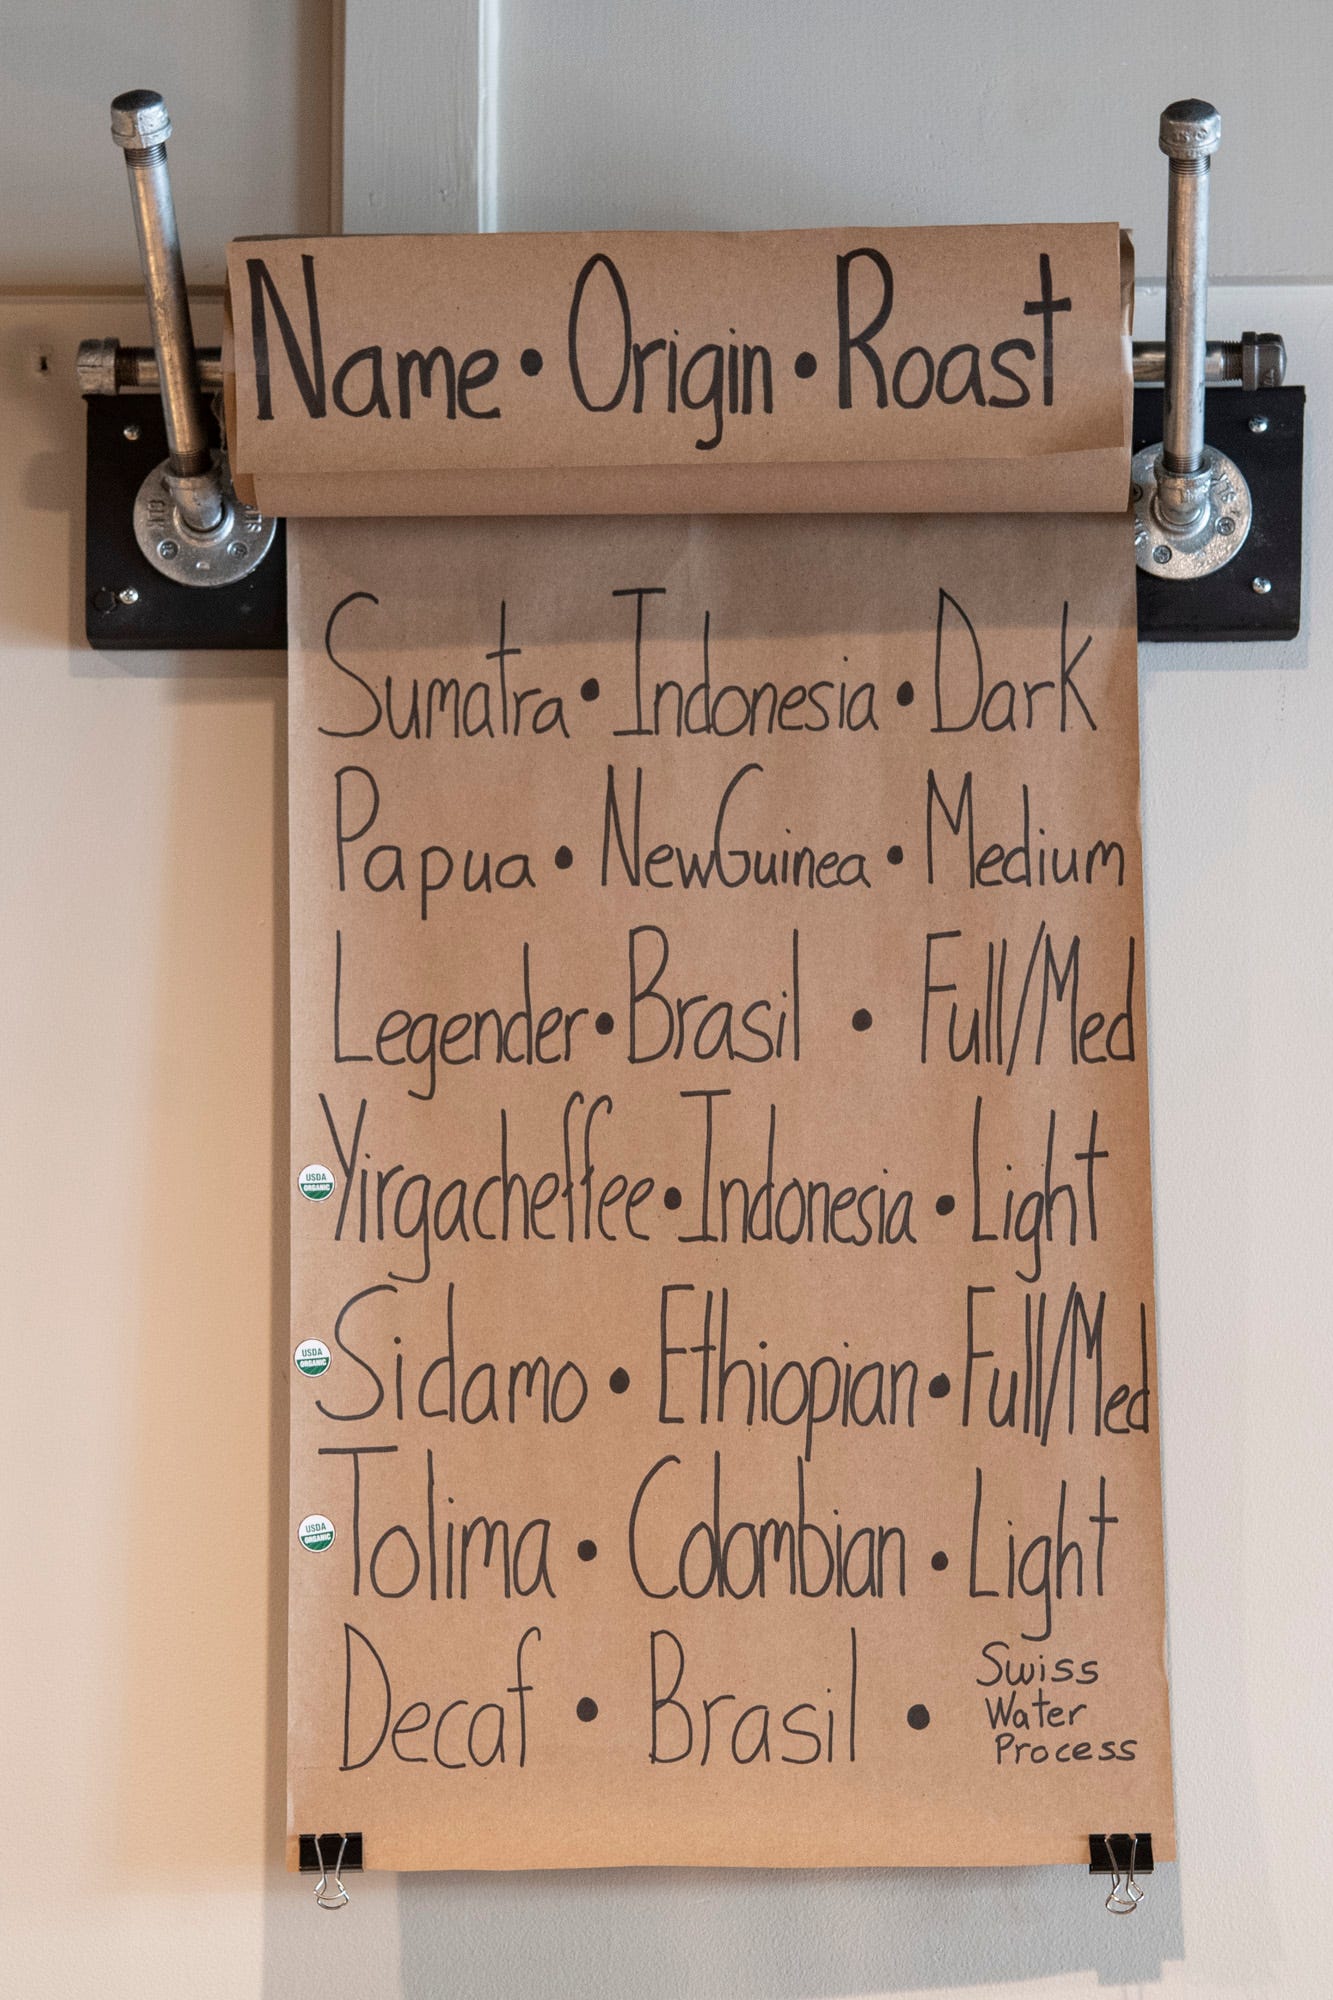 Name • Origin • Roast
Sumatra • Indonesia • Dark
Papua • New Guinea • Medium
Legender • Brasil • Full/Med
USDA ORGANIC Yirgacheffee • Indonesia • Light
USDA ORGANIC Sidamo • Ethiopian • Full/Med
USDA ORGANIC Tolima • Colombian • Light
Decaf • Brasil • Swiss
Water
Process